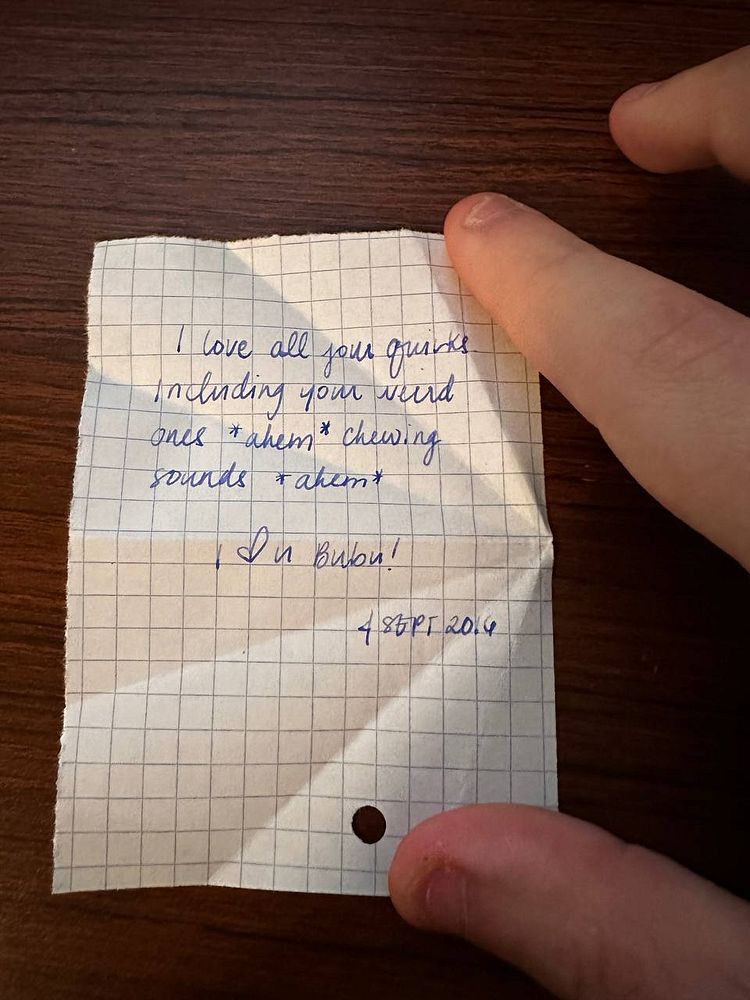 I love all your quirks
Including your weird
ones *ahem* chewing
sounds *ahem*
I ♡ u Bubu!
4 SEPT 2016